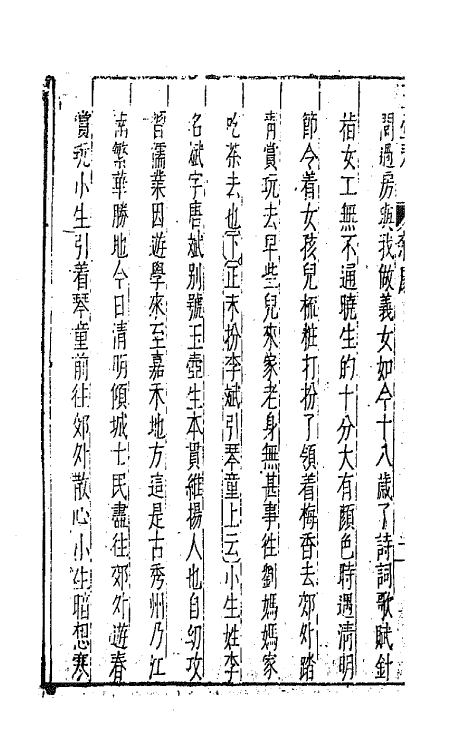 間過房與我做義女如今十八歲了詩詞歌賦針
指女工無不通曉生的十分大有顏色時遇清明
節令着女孩兒梳粧打扮了領着梅香去郊外踏
青賞玩去早些兒來家老身無甚事徃劉媽媽家
吃茶去也下正末扮李斌引琴童上云小生姓李
名斌字唐斌别號玉壺生本貫維揚人也自幼攻
習儒業因遊學來至嘉禾地方這是古秀州乃江
南繁華勝地今日清明傾城士民盡徃郊外遊春
賞玩小生引着琴童前徃郊外散心小生暗想寒